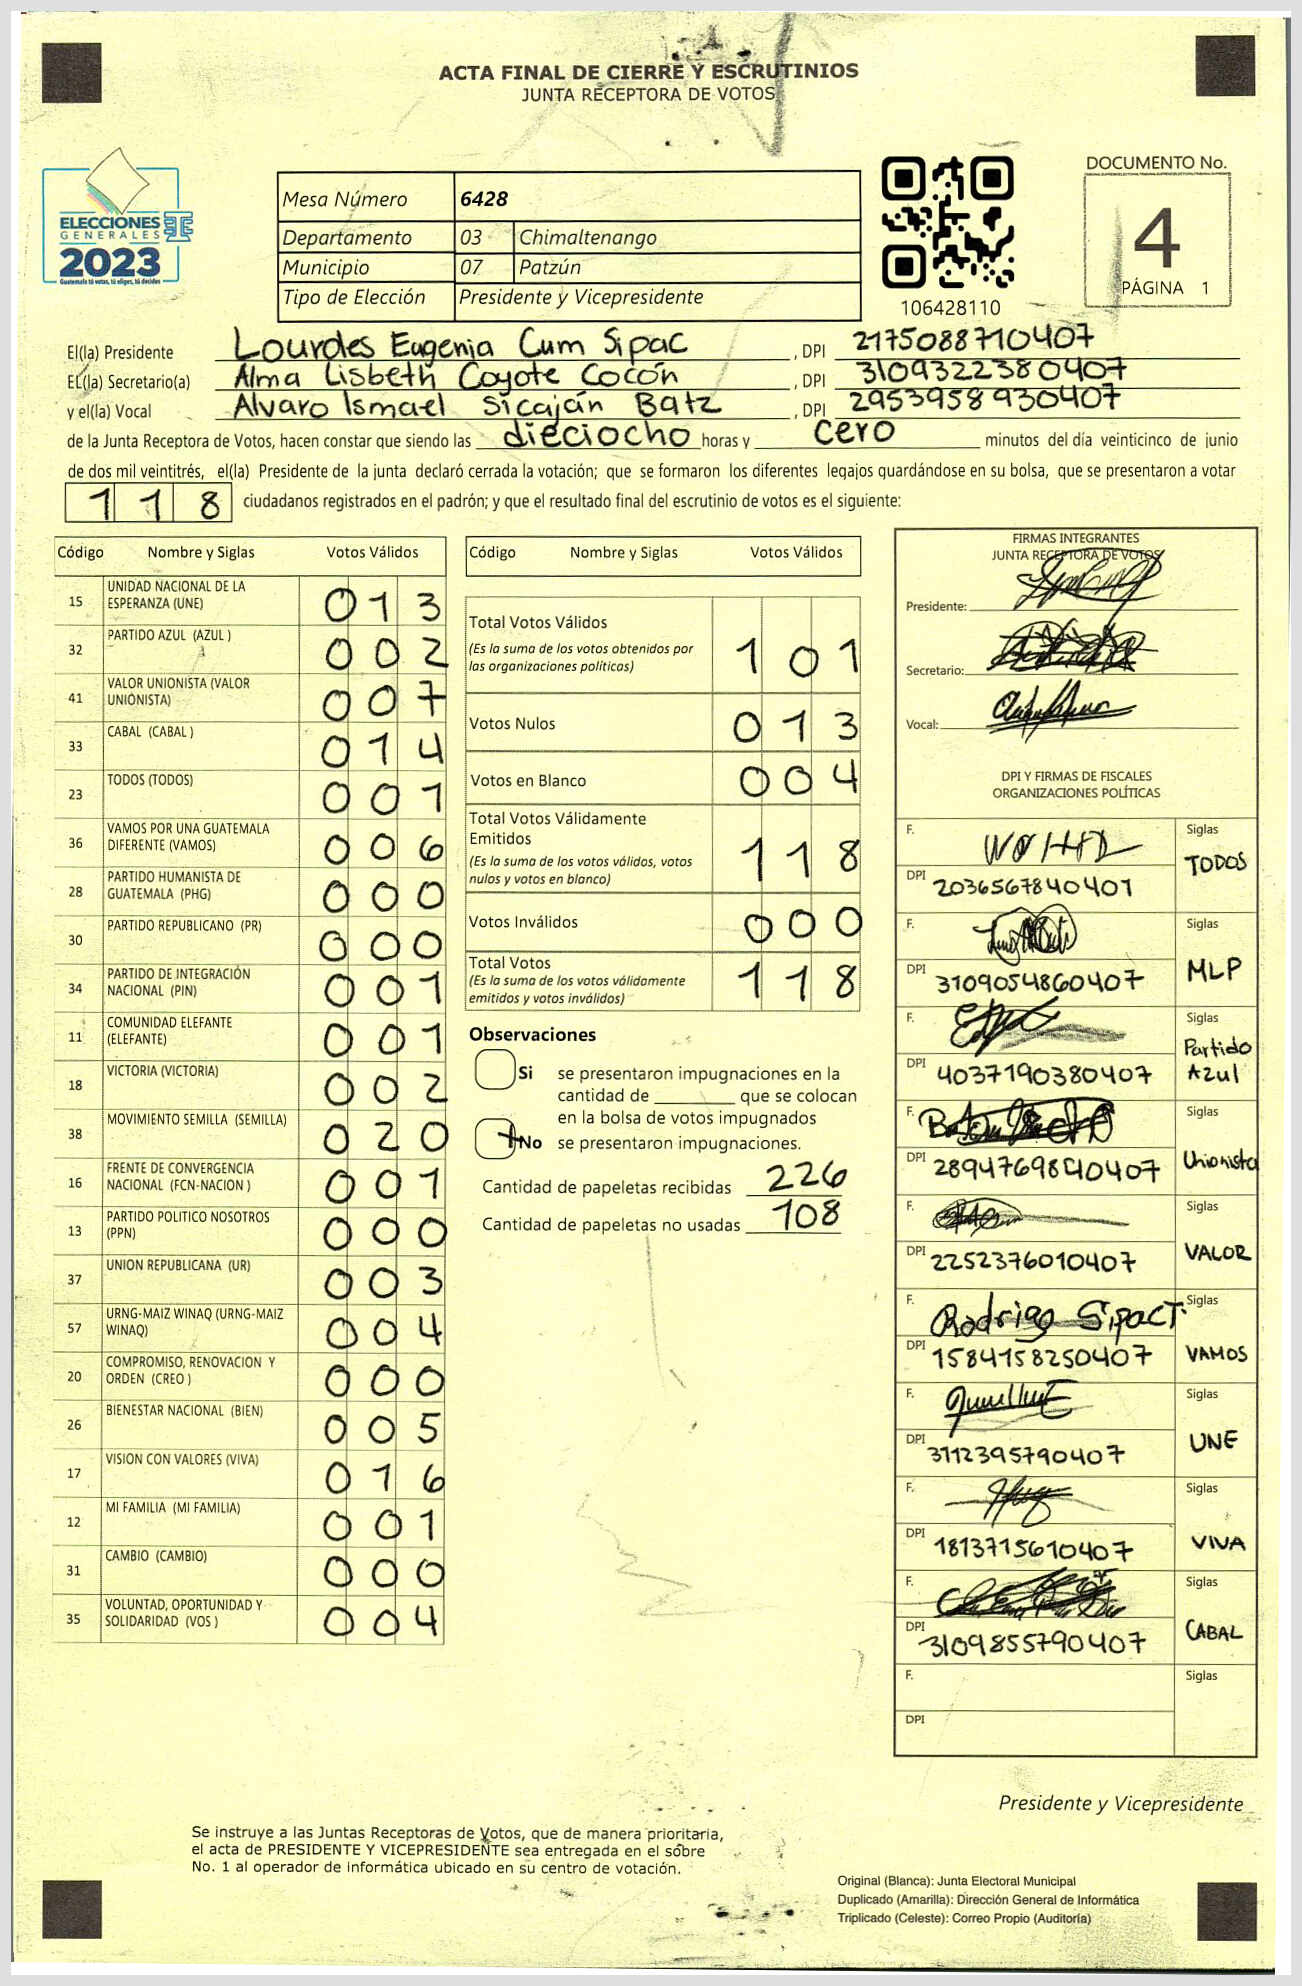 ACTA FINAL DE CIERRE Y ESCRUTINIOS
JUNTA RECEPTORA DE VOTOS
ELECCIONES
GENERALES
2023
Guatemala tú votas, tú eliges, tú decides
Mesa Número 6428
Departamento 03 Chimaltenango
Municipio 07 Patzún
Tipo de Elección Presidente y Vicepresidente
106428110
DOCUMENTO No.
4
PÁGINA 1
El(la) Presidente Lourdes Eugenia Cum Sipac , DPI 2175088710407
EL(la) Secretario(a) Alma Lisbeth Coyote Cocón , DPI 3109322380407
y el(la) Vocal Alvaro Ismael Sicaján Batz , DPI 2953958930407
de la Junta Receptora de Votos, hacen constar que siendo las dieciocho horas y cero minutos del día veinticinco de junio
de dos mil veintitrés, el(la) Presidente de la junta declaró cerrada la votación; que se formaron los diferentes legajos guardándose en su bolsa, que se presentaron a votar
118 ciudadanos registrados en el padrón; y que el resultado final del escrutinio de votos es el siguiente:
Código Nombre y Siglas Votos Válidos
15 UNIDAD NACIONAL DE LA ESPERANZA (UNE) 013
32 PARTIDO AZUL (AZUL ) 002
41 VALOR UNIONISTA (VALOR UNIONISTA) 007
33 CABAL (CABAL ) 014
23 TODOS (TODOS) 001
36 VAMOS POR UNA GUATEMALA DIFERENTE (VAMOS) 006
28 PARTIDO HUMANISTA DE GUATEMALA (PHG) 000
30 PARTIDO REPUBLICANO (PR) 000
34 PARTIDO DE INTEGRACIÓN NACIONAL (PIN) 001
11 COMUNIDAD ELEFANTE (ELEFANTE) 001
18 VICTORIA (VICTORIA) 002
38 MOVIMIENTO SEMILLA (SEMILLA) 020
16 FRENTE DE CONVERGENCIA NACIONAL (FCN-NACION ) 001
13 PARTIDO POLITICO NOSOTROS (PPN) 000
37 UNION REPUBLICANA (UR) 003
57 URNG-MAIZ WINAQ (URNG-MAIZ WINAQ) 004
20 COMPROMISO, RENOVACION Y ORDEN (CREO ) 000
26 BIENESTAR NACIONAL (BIEN) 005
17 VISION CON VALORES (VIVA) 016
12 MI FAMILIA (MI FAMILIA) 001
31 CAMBIO (CAMBIO) 000
35 VOLUNTAD, OPORTUNIDAD Y SOLIDARIDAD (VOS ) 004
Código Nombre y Siglas Votos Válidos
Total Votos Válidos
(Es la suma de los votos obtenidos por
las organizaciones políticas) 101
Votos Nulos 013
Votos en Blanco 004
Total Votos Válidamente
Emitidos
(Es la suma de los votos válidos, votos
nulos y votos en blanco) 118
Votos Inválidos 000
Total Votos
(Es la suma de los votos válidamente
emitidos y votos inválidos) 118
Observaciones
Si se presentaron impugnaciones en la
cantidad de ________ que se colocan
en la bolsa de votos impugnados
No se presentaron impugnaciones.
Cantidad de papeletas recibidas 226
Cantidad de papeletas no usadas 108
FIRMAS INTEGRANTES
JUNTA RECEPTORA DE VOTOS
Presidente:
Secretario:
Vocal:
DPI Y FIRMAS DE FISCALES
ORGANIZACIONES POLÍTICAS
F. Siglas
DPI 2036567840401 TODOS
F. Siglas
DPI 3109054860407 MLP
F. Siglas
DPI 4037190380407 Partido Azul
F. Siglas
DPI 2894769890407 Unionista
F. Siglas
DPI 2252376010407 VALOR
F. Rodrigo Sipac T. Siglas
DPI 1584158250407 VAMOS
F. Siglas
DPI 3112395790407 UNE
F. Siglas
DPI 1813715610407 VIVA
F. Siglas
DPI 3109855790407 CABAL
F. Siglas
DPI
Presidente y Vicepresidente
Se instruye a las Juntas Receptoras de Votos, que de manera prioritaria,
el acta de PRESIDENTE Y VICEPRESIDENTE sea entregada en el sobre
No. 1 al operador de informática ubicado en su centro de votación.
Original (Blanca): Junta Electoral Municipal
Duplicado (Amarilla): Dirección General de Informática
Triplicado (Celeste): Correo Propio (Auditoría)